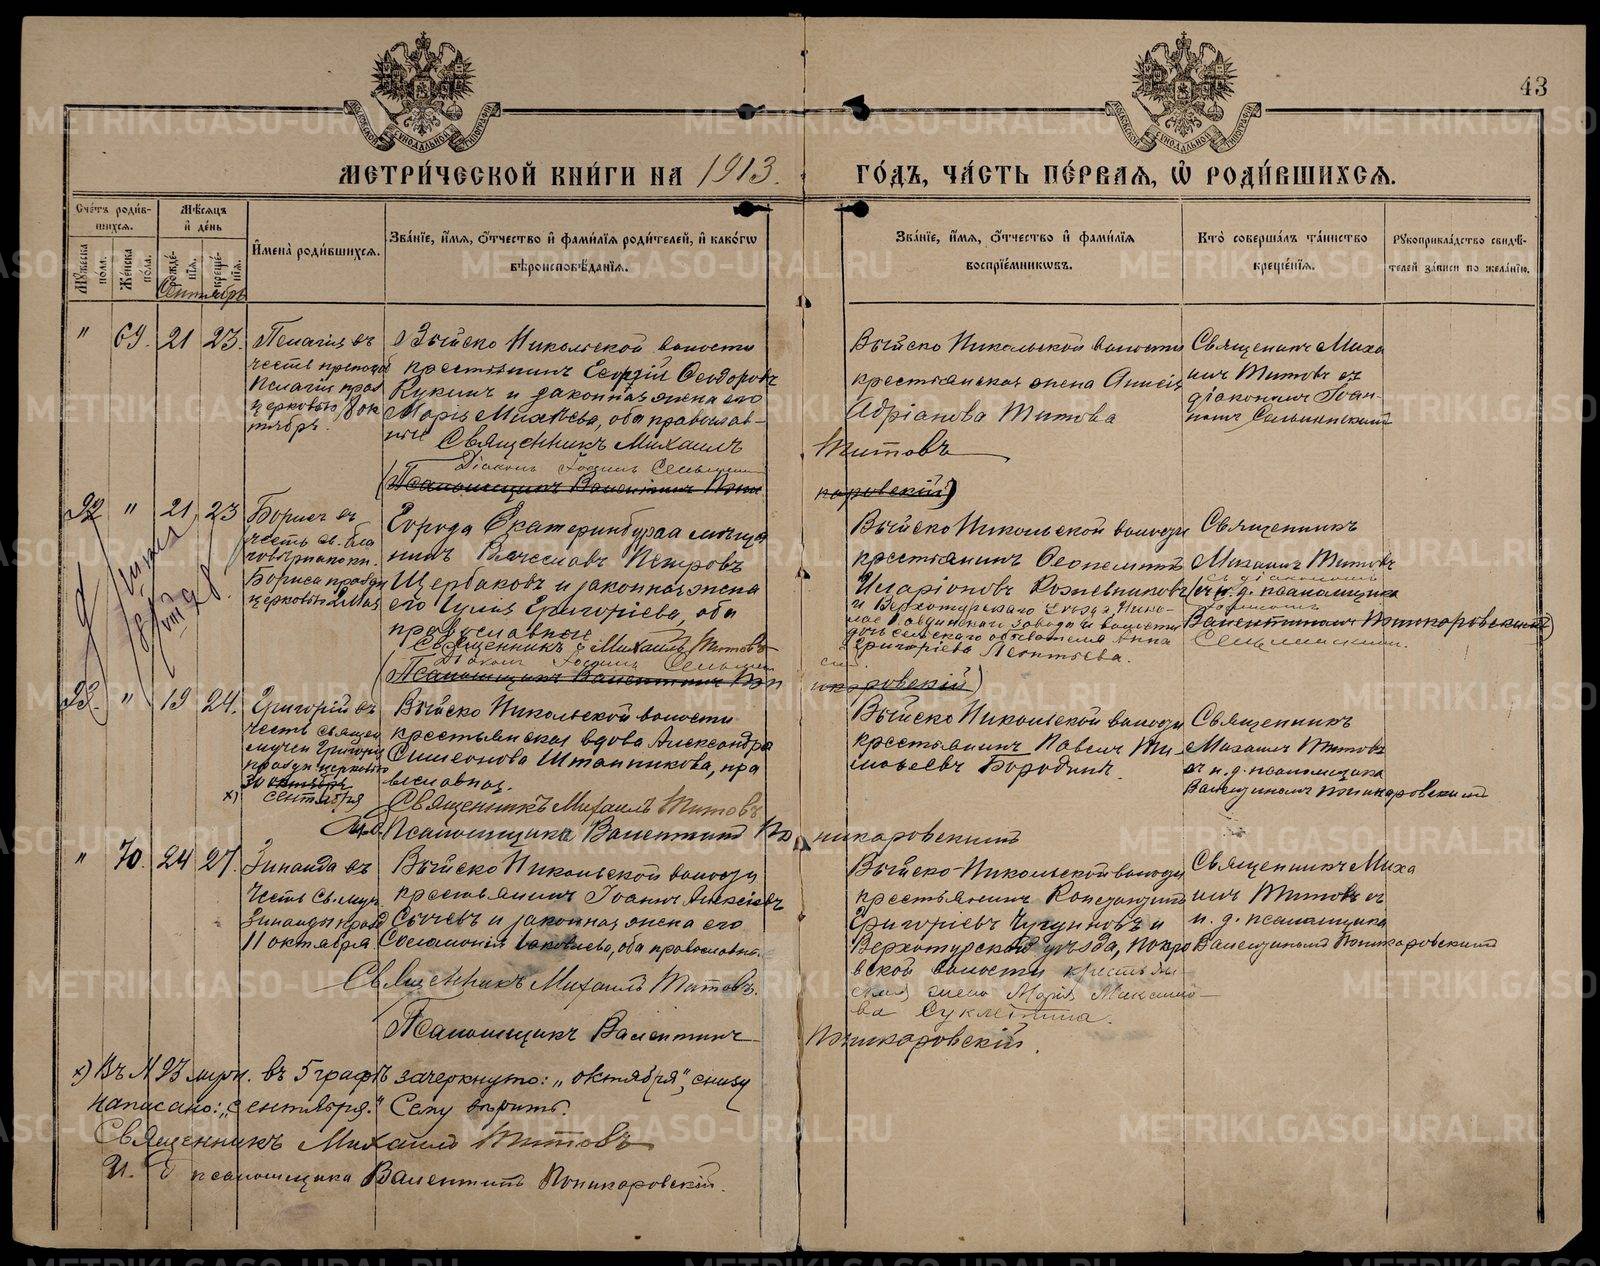 43
МЕТРИ́ЧЕСКОЙ КНИ́ГИ НА 1913. ГО́ДЪ, ЧА́СТЬ ПЕ́РВАЯ, Ѽ РОДИ́ВШИХСЯ.
Сче́тъ роди́в-
шихся.
Мѣ́сяцъ
и҆ де́нь
Мꙋ́жеска пола.
Же́нска пола.
рожде́нїя.
креще́нїя.
И҆мена̀ роди́вшихся.
Зва́нїе, и҆́мѧ, ѻ҆́тчество и҆ фами́лїѧ роди́телей, и҆ како́гѡ
вѣроисповѣ́данїѧ.
Зва́нїе, и҆́мѧ, ѻ҆́тчество и҆ фами́лїѧ
воспрїе́мникѡвъ.
Кто̀ соверша́лъ та́инство
креще́нїѧ.
Рꙋкоприкла́дство свидѣ́-
телей за́писи по жела́нїю.
Сентябрь
" 69. 21 23.
Пелагия въ
честь препод
Пелагіи празд
церковью 8 ок
тября.
Выйско Никольской волости
крестьянинъ Георгій Ѳеодоровъ
Кукинъ и законная жена его
Марія Михѣева, оба православ-
ные
Священникъ Михаилъ Титовъ
Діаконъ Іоаннъ
(Псаломщикъ Валентинъ Поникаровскій)
Выйско Никольской волости
крестьянская жена Анисія
Адріанова Титова
Священникъ Миха
илъ Титовъ съ
діакономъ Іоан-
номъ
22 " 21 23
Борисъ въ
честь св. бла
говѣрнаго кн.
Бориса праздн
церковью 2 Мая
Города Екатеринбурга мѣща
нинъ Вячеславъ Петровъ
Щербаковъ и законная жена
его Юлія Григоріева, оба
православные
Священникъ Михаилъ Титовъ
Діаконъ Іоаннъ
(Псаломщикъ Валентинъ Поникаровскій)
Выйско Никольской волости
крестьянинъ Ѳеопемптъ
Иларіоновъ Кожевниковъ
и Верхотурскаго уѣзда, Нико-
лае Павдинскаго завода и волости
дочь сельскаго обывателя Анна
Григоріева Леонтьева.
Священникъ
Михаилъ Титовъ
съ діакономъ
(съ и. д. псаломщика
Іоанномъ
Валентиномъ Поникаровскимъ)
23. " 19 24.
Григорій въ
честь священ
мучен. Григорія
праздн церковью
30 октября
х) сентября
Выйско Никольской волости
крестьянская вдова Александра
Симеонова Штанникова, пра
вославная.
Священникъ Михаилъ Титовъ
Псаломщика Валентинъ Поникаровскимъ
Выйско Никольской волости
крестьянинъ Павелъ Ти
моѳеевъ Бородинъ.
Священникъ
Михаилъ Титовъ
съ и. д. псаломщика
Валентиномъ Поникаровскимъ
" 70. 24 27.
Зинаида въ
честь Св. муч.
Зинаиды празд
11 октября
Выйско Никольской волости
крестьянинъ Іоаннъ Алексіевъ
Сычевъ и законная жена его
Соломонія Іаковлева, оба православные.
Священникъ Михаилъ Титовъ.
Псаломщикъ Валентинъ Поникаровскій.
Выйско-Никольской волости
крестьянинъ Константинъ
Григоріевъ Чугуновъ и
Верхотурскаго уѣзда, Покро
вской волости крестьян-
ская жена Марія Максимо-
ва
Священникъ Миха
илъ Титовъ съ
и. д. псаломщика
Валентиномъ Поникаровскимъ
х) Въ № 23 муж. въ 5 графѣ зачеркнуто: „октября", снизу
написано: „сентября." Сему вѣрить.
Священникъ Михаилъ Титовъ
И. Д псаломщика Валентинъ Поникаровскій.